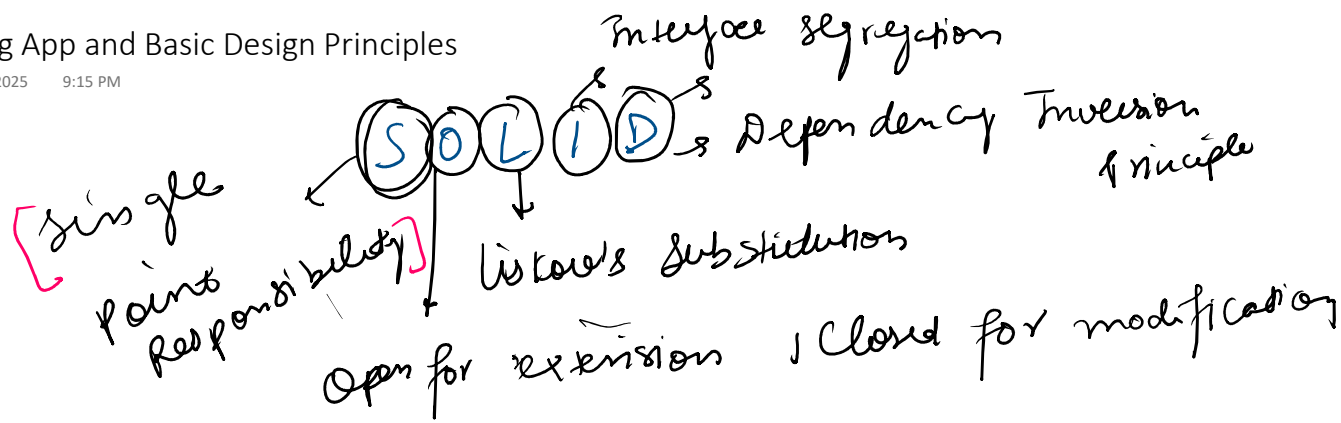 g App and Basic Design Principles
2025 9:15 PM
Interface segregation
SOLID
Dependency Inversion
Principle
[single
Point
Responsibility]
Liskow's Substitution
Open for extension , Closed for modification